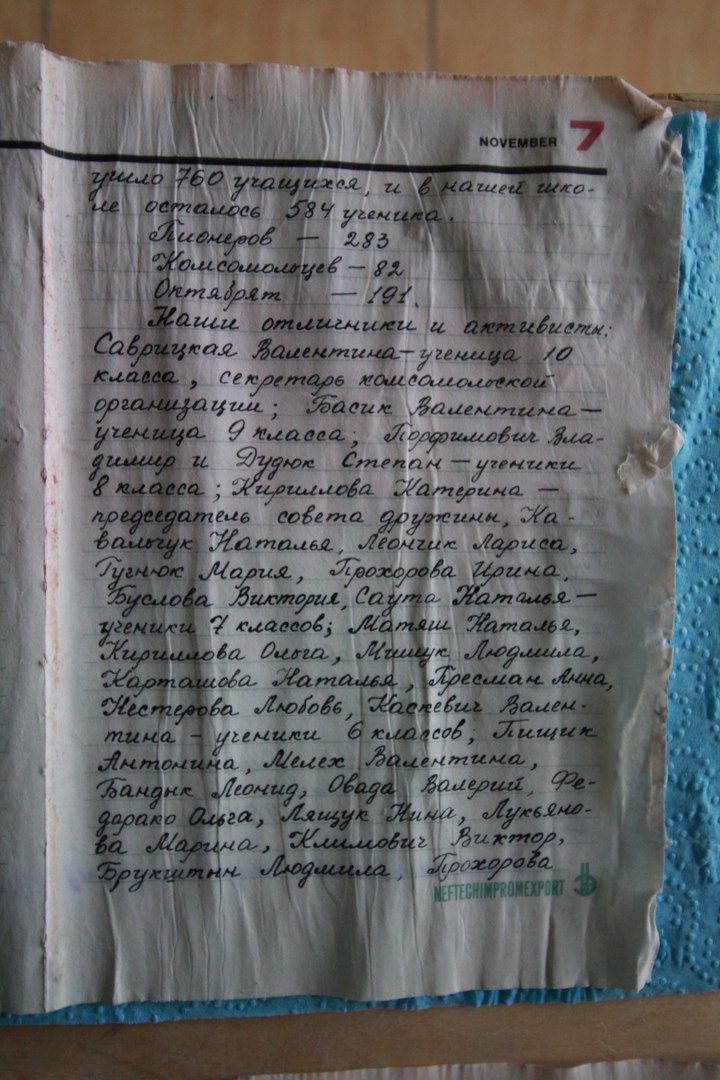 NOVEMBER 7
ушло 760 учащихся, и в нашей шко-
ле осталось 584 ученика.
Пионеров — 283
Комсомольцев — 82
Октябрят — 191.
Наши отличники и активисты:
Саврицкая Валентина — ученица 10
класса, секретарь комсомольской
организации; Басик Валентина —
ученица 9 класса; Порфимович Вла-
димир и Дудюк Степан — ученики
8 класса; Кириллова Катерина —
председатель совета дружины, Ка-
вальчук Наталья, Леончик Лариса,
Гугнюк Мария, Прохорова Ирина,
Буслова Виктория, Саута Наталья —
ученики 7 классов; Матяш Наталья,
Кириллова Ольга, Мишук Людмила,
Карташова Наталья, Пресман Анна,
Нестерова Любовь, Каскевич Вален-
тина - ученики 6 классов; Пищик
Антонина, Мелех Валентина,
Бандык Леонид, Овада Валерий, Фе-
дарако Ольга, Лящук Нина, Лукьяно-
ва Марина, Климович Виктор,
Брукштын Людмила, Прохорова
NEFTECHIMPROMEXPORT